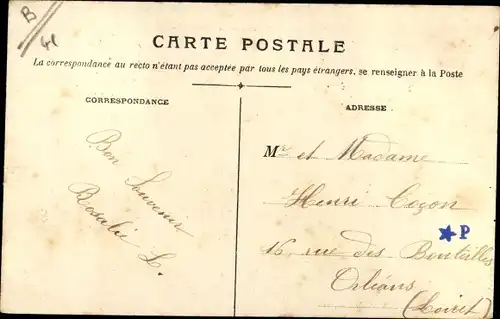 B
41
CARTE POSTALE
La correspondance au recto n'étant pas acceptée par tous les pays étrangers, se renseigner à la Poste
CORRESPONDANCE
Bon Souvenir
Rosalie L.
ADRESSE
Mr et Madame
Henri Cozon
P
16, rue des Bouteilles
Orléans
(Loiret)